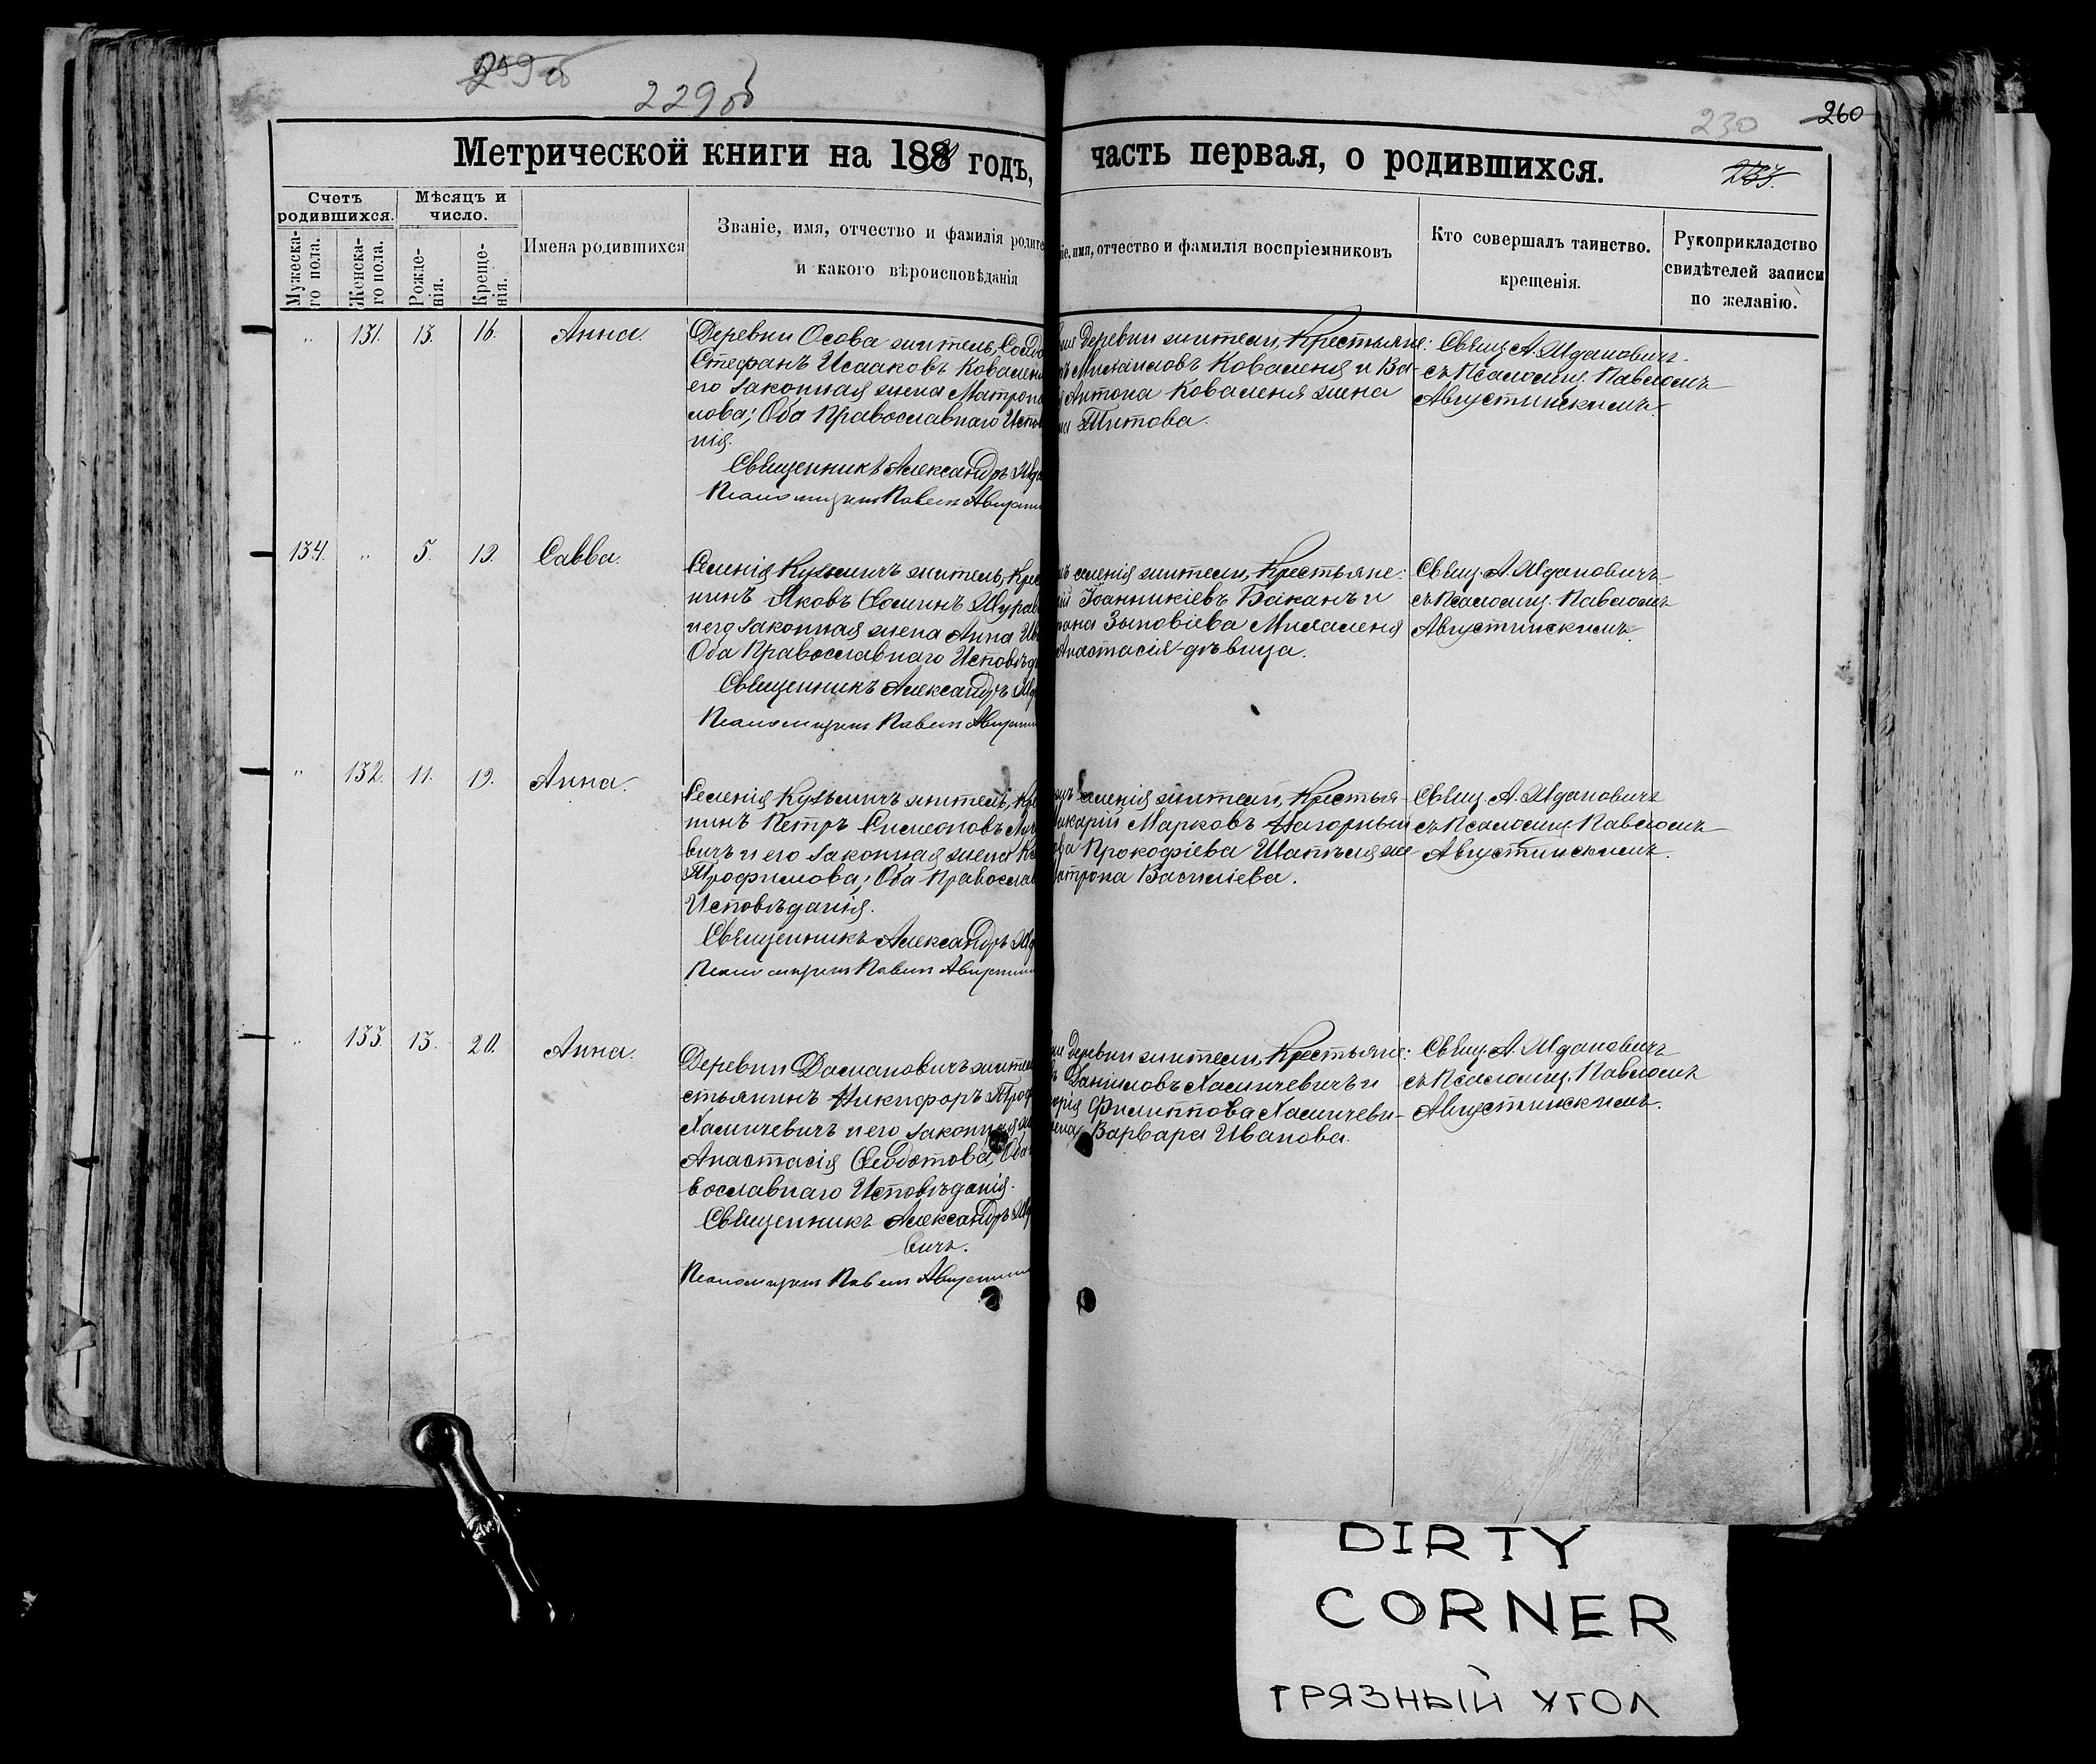 229 об
230
260
Метрической книги на 188 годъ,
часть первая, о родившихся.
Счетъ родившихся.
Мѣсяцъ и число.
Мужеска-го пола.
Женска-го пола.
Рожде-нія.
Креще-нія.
Имена родившихся
Званіе, имя, отчество и фамилія родите
и какого вѣроисповѣданія
іе, имя, отчество и фамилія воспріемниковъ
Кто совершалъ таинство.
крещенія.
Рукоприкладство
свидѣтелей записи
по желанію.
" 131. 13. 16. Анна.
Деревни Осова житель, Солд
Стефанъ Исааковъ Ковалень
его законная жена Матрон
лова; Оба Православнаго Испов
нія.
Священникъ Александръ Жд
Псаломщикъ Павелъ Августин
Деревни жители, Крестьяне:
Михаиловъ Коваленя и Ва-
Антона Коваленя жена
Титова.
Свящ. А. Ждановичъ
съ Псаломщ. Павломъ
Августинскимъ.
134. " 5. 19. Савва.
Селенія Кузьмичъ житель, Крес
нинъ Яковъ Журав
и его законная жена Анна Ив
Оба Православнаго Исповѣд
Священникъ Александръ Жд
Псаломщикъ Павелъ Августин
селенія жители, Крестьяне:
Іоанникіевъ Баканъ и
Зиновіева Михаленя
Анастасія дѣвица.
Свящ. А. Ждановичъ
съ Псаломщ. Павломъ
Августинскимъ.
" 132. 11. 19. Анна.
Селенія Кузьмичъ житель, Кре
нинъ Петръ Симеоновъ
вичъ и его законная жена
Трофимова; Оба Православ
Исповѣданія.
Священникъ Александръ Жд
Псаломщикъ Павелъ Августин
селенія жители, Крестья-
акарій Марковъ Нагорный
Прокофіева Шапеля же-
атрона Василіева.
Свящ. А. Ждановичъ
съ Псаломщ. Павломъ
Августинскимъ.
" 133. 13. 20. Анна.
Деревни Домановичъ жител
стьянинъ Никифоръ Троф
Хамичевичъ и его законная же
Анастасія Ѳеодотова; Оба
вославнаго Исповѣданія.
Священникъ Александръ Жд
вичъ.
Псаломщикъ Павелъ Августин
деревни жители, Крестьяне:
Даніиловъ Хамичевичъ и
Филиппова Хамичеви-
Варвара Иванова.
Свящ. А. Ждановичъ
съ Псаломщ. Павломъ
Августинскимъ.
DIRTY
CORNER
ГРЯЗНЫЙ УГОЛ